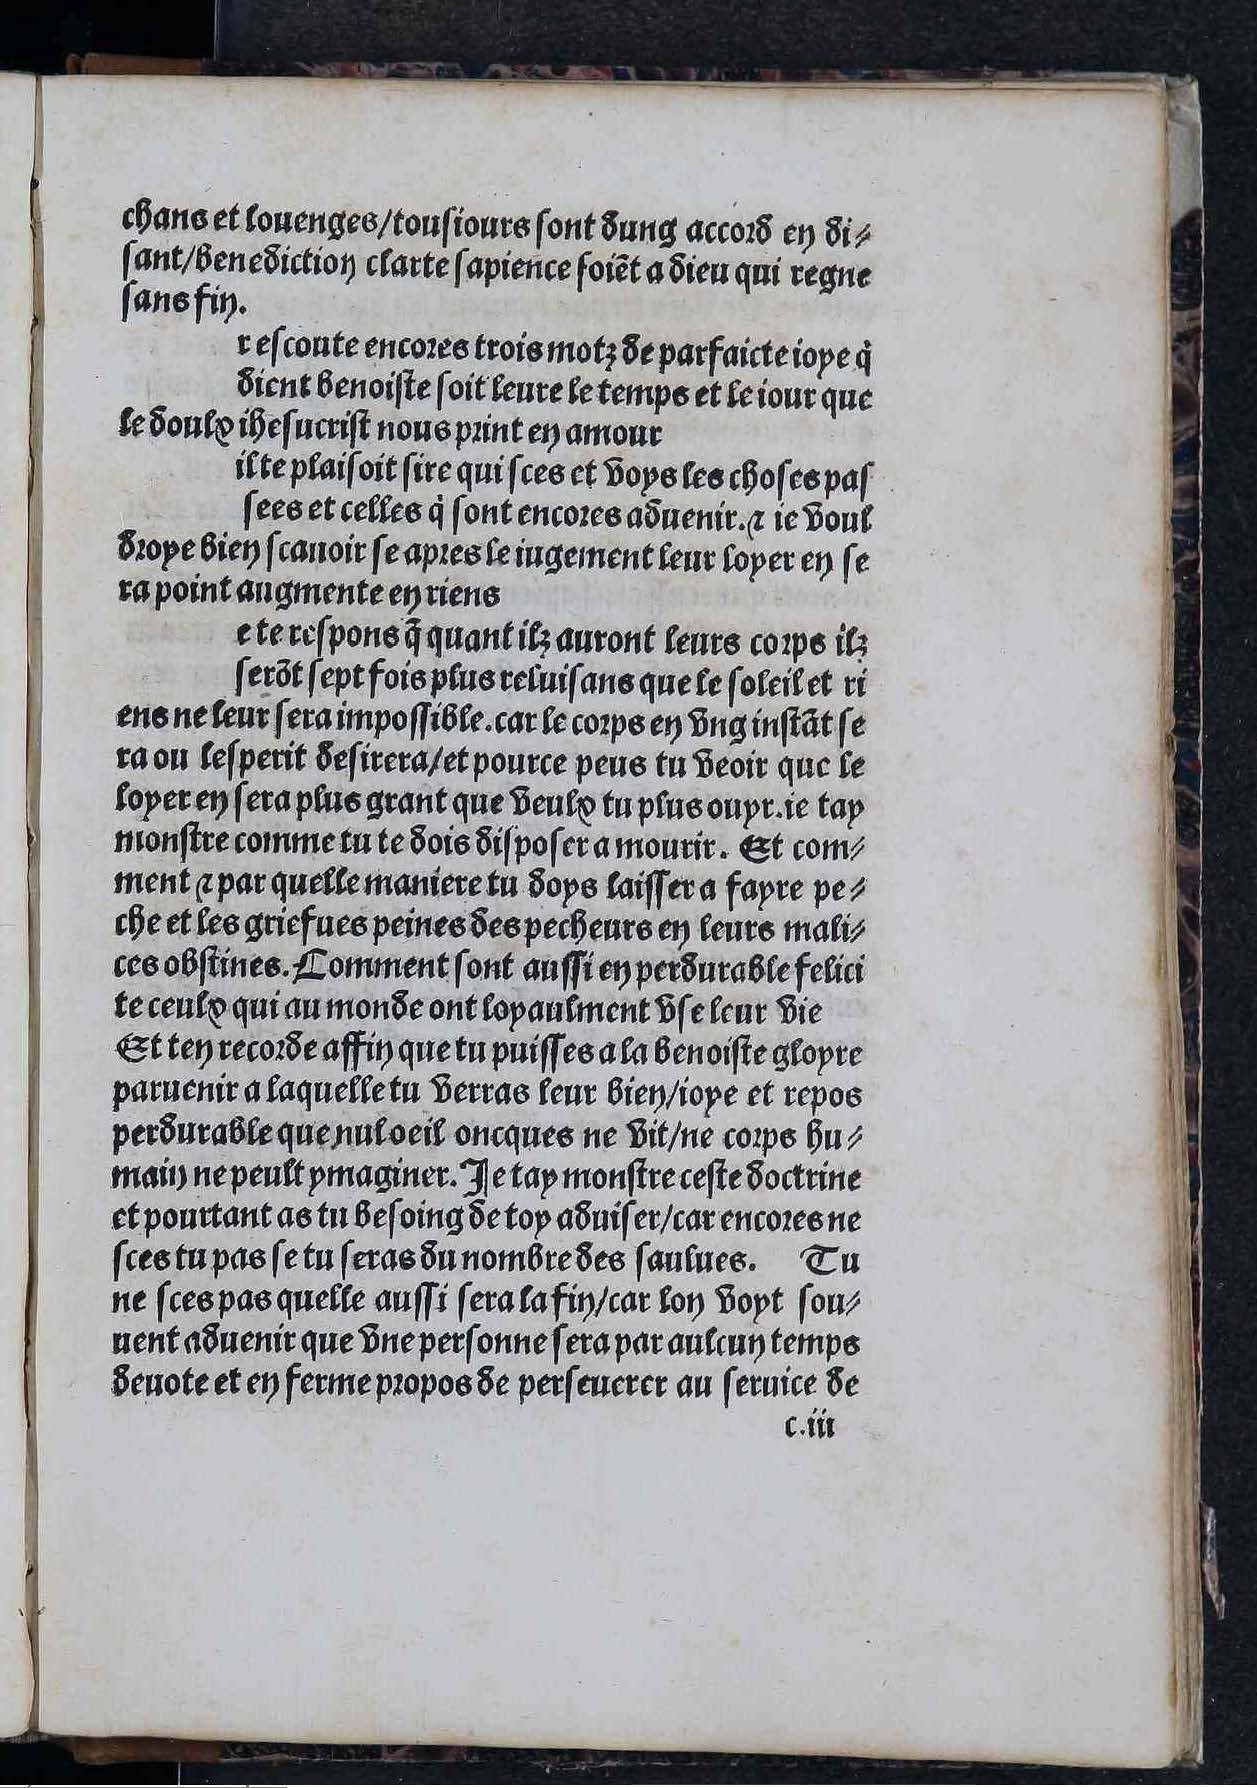 chans et louenges/tousiours sont dung accord en di⸗
sant/benediction clarte sapience soiēt a dieu qui regne
sans fin.
r escoute encores trois motz de parfaicte ioye q̇
dient benoiste soit leure le temps et le iour que
le doulx ihesucrist nous print en amour
il te plaisoit sire qui sces et voys les choses pas
sees et celles q̇ sont encores aduenir. ⁊ ie voul
droye bien scauoir se apres le iugement leur loyer en se
ra point augmente en riens
e te respons q̄ quant ilz auront leurs corps ilz
serōt sept fois plus reluisans que le soleil et ri
ens ne leur sera impossible. car le corps en vng instāt se
ra ou lesperit desirera/et pource peus tu veoir que le
loyer en sera plus grant que veulx tu plus ouyr. ie tay
monstre comme tu te dois disposer a mourir. Et com⸗
ment ⁊ par quelle maniere tu doys laisser a fayre pe⸗
che et les griefues peines des pecheurs en leurs mali⸗
ces obstines. Comment sont aussi en perdurable felici
te ceulx qui au monde ont loyaulment vse leur vie
Et ten recorde affin que tu puisses a la benoiste gloyre
paruenir a laquelle tu verras leur bien/ioye et repos
perdurable que nul oeil oncques ne vit/ne corps hu⸗
main ne peult ymaginer. Je tay monstre ceste doctrine
et pourtant as tu besoing de toy aduiser/car encores ne
sces tu pas se tu seras du nombre des saulues. Tu
ne sces pas quelle aussi sera la fin/car lon voyt sou⸗
uent aduenir que vne personne sera par aulcun temps
deuote et en ferme propos de perseuerer au seruice de
c.iii